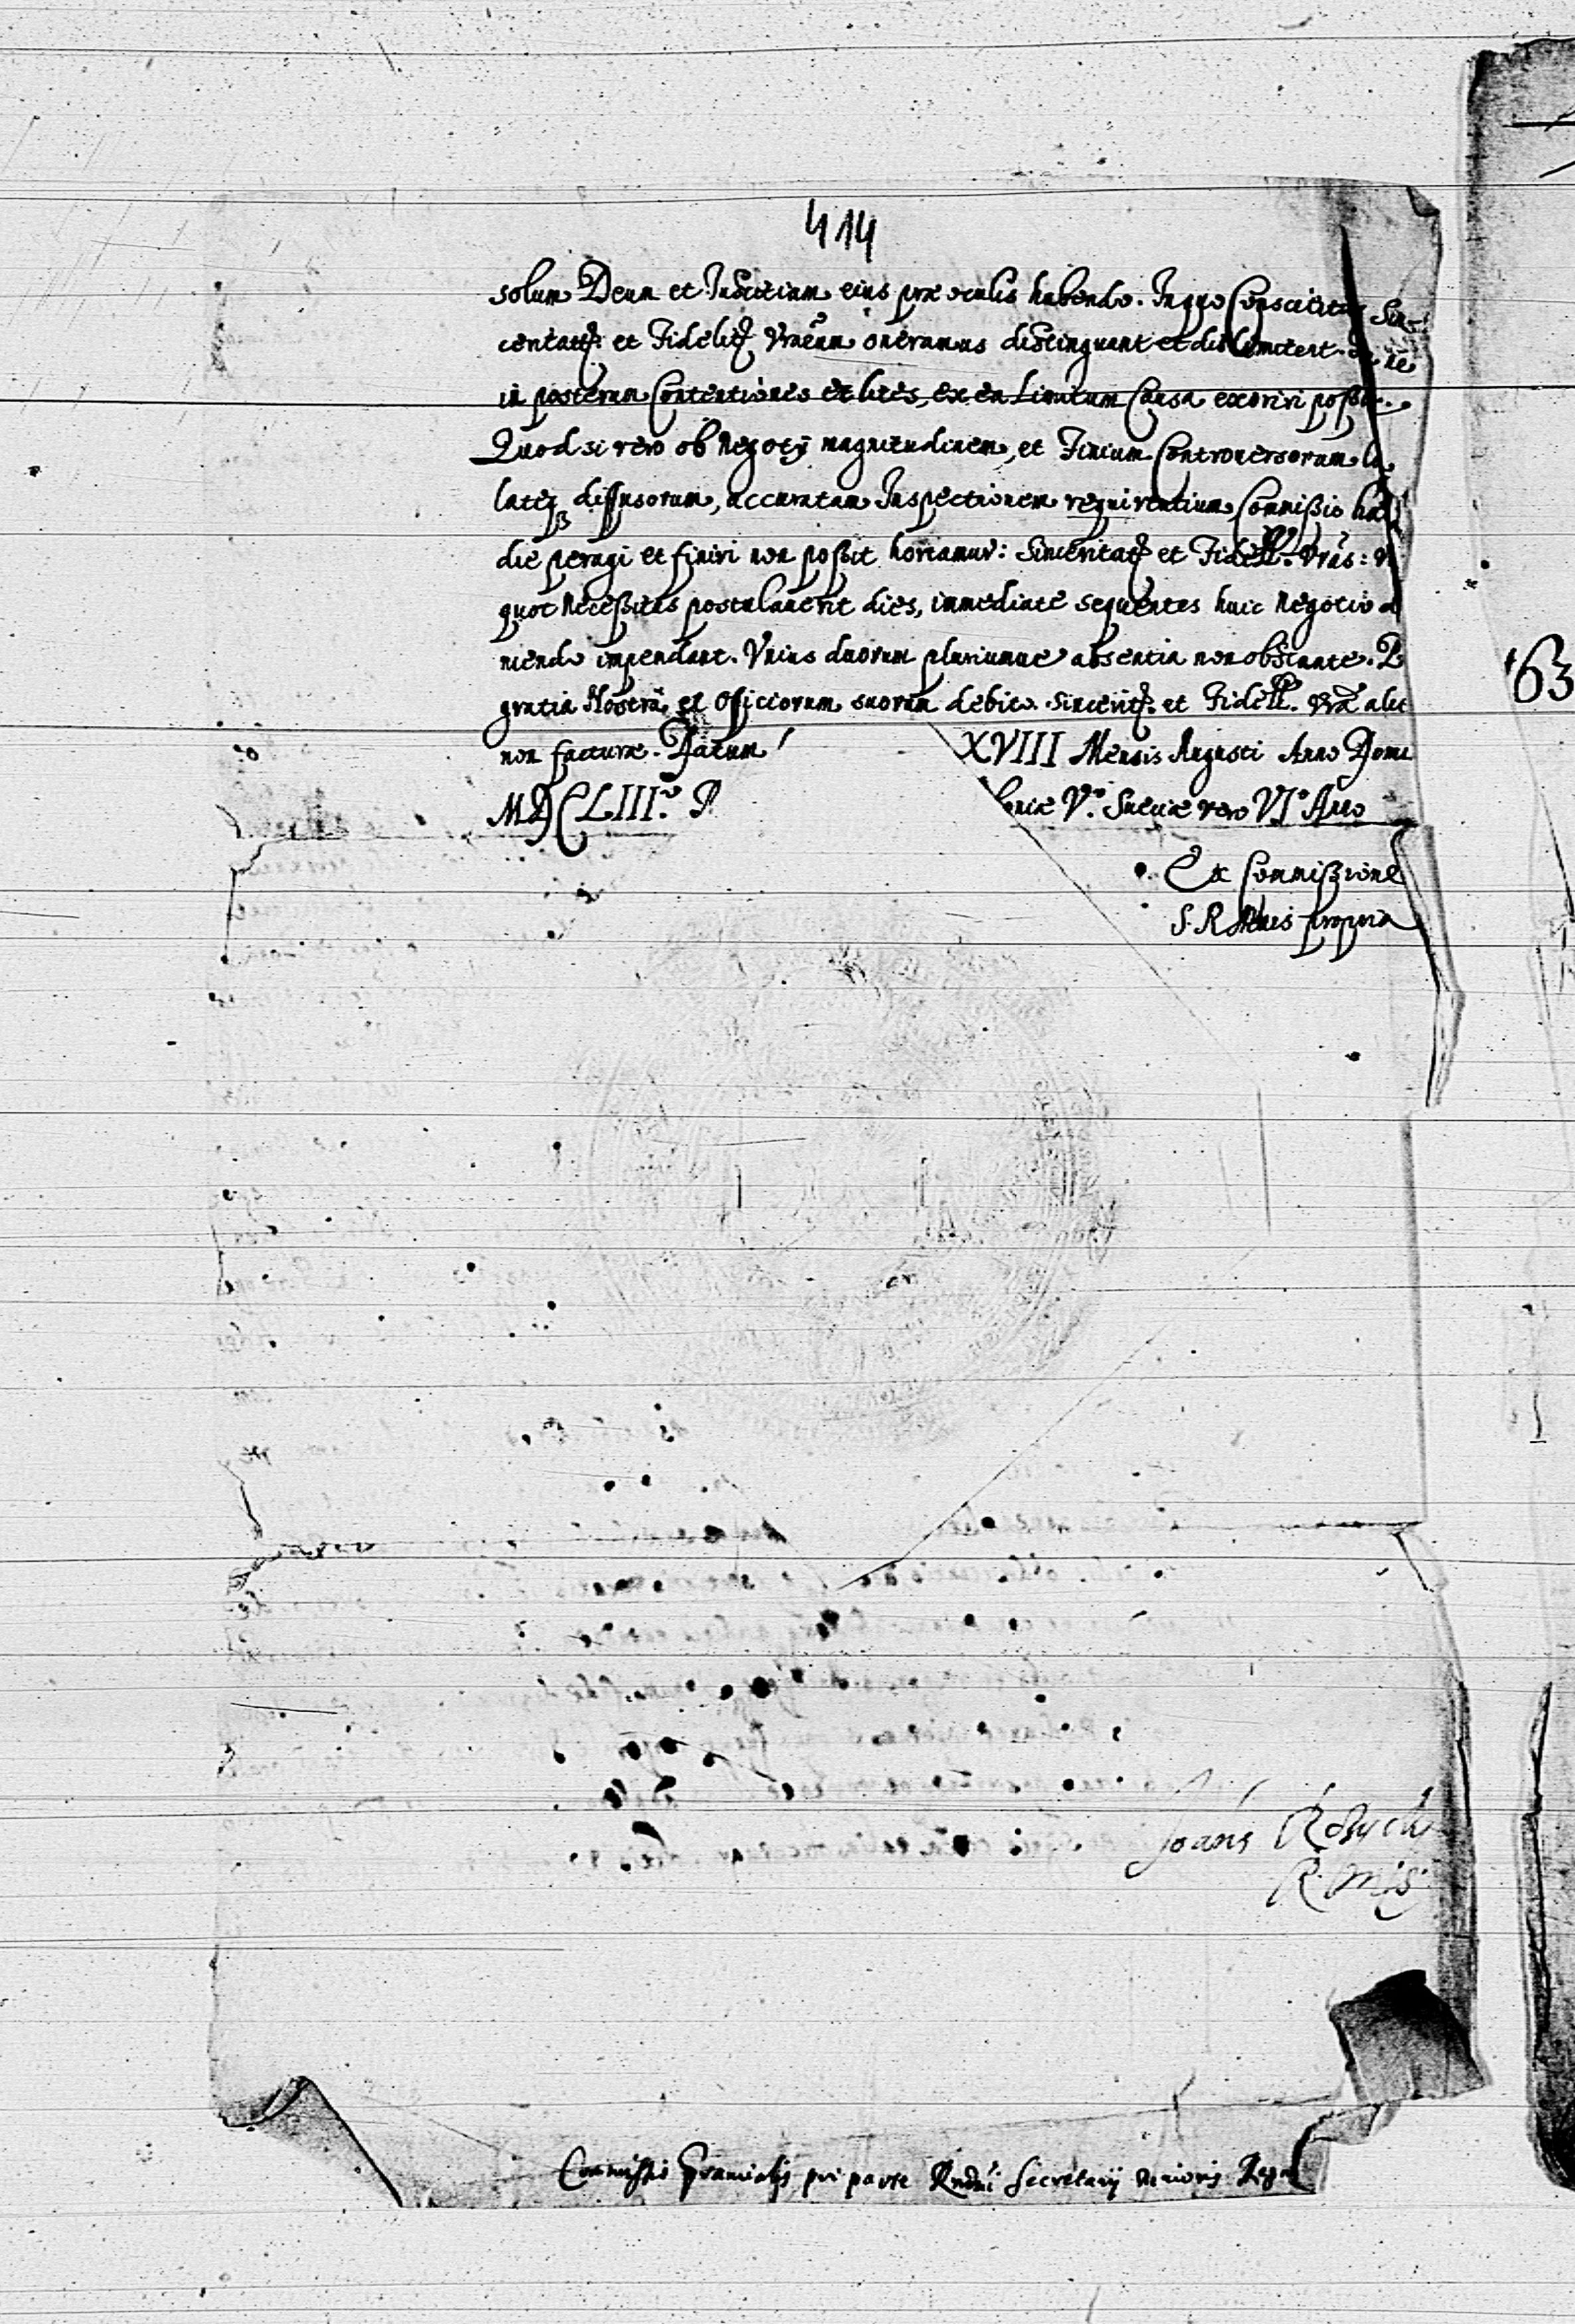 414
solum Deum et Iustitiam eius præ oculis habendo. In quo Conscientias Sin-
ceritatũ et Fidelitũ Vrarum oneramus distinguant et dislimitent. ne
in posterum Contentiones et lites, ex ea Limitum Causa exoriri possit.
Quod si vero ob Negotij magnitudinem, et Finium Controversorum
lateq₃ diffusorum, accuratam Inspectionem requirentium, Commißio
die peragi et finiri non poßit hortamur: Sinceritatũ et Fidell. Vras:
quot Neceßitas postulaverit dies, immediate sequentes huic Negotio
niendo impendant. Vnius duorum pluriumue absentia non obstante.
gratia Nostra, et Officiorum suorum debito. Sincerit. et Fidell. Vræ alit
non facturæ. Datum XVIII Mensis Augusti Anno Domi
MDCLIII.º P niæ Vº. Sueciæ vero VIº Anno
Ex Commißione
S. R. Mtis propria
Joãns
R. Mtis
Commissio pro parte Rndmi Secretarij Regni